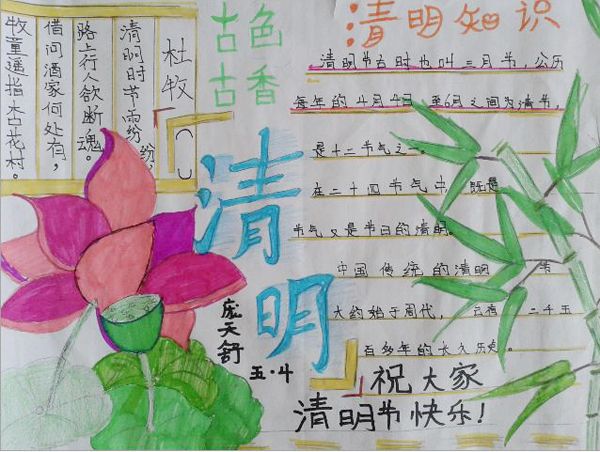 杜牧
清明时节雨纷纷，
路上行人欲断魂。
借问酒家何处有，
牧童遥指杏花村。
古色
古香
清明
庞天舒
五·4
清明知识
清明节古时也叫三月节，公历
每年的4月4日至6日之间为清明节，
是十二节气之一。
在二十四节气中 既是
节气又是节日的清明。
中国传统的清明 节
大约始于周代， 二千五
百多年的长久历史。
祝大家
清明节快乐！